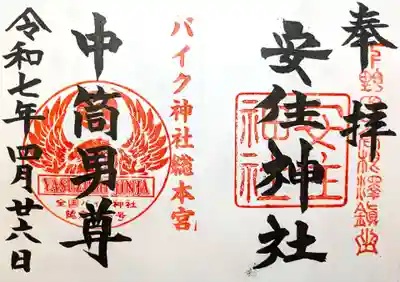 奉拝
安住神社
安住
神社
バイク神社総本宮
中筒男尊
YASUZUMI JINJA
令和七年四月廿六日